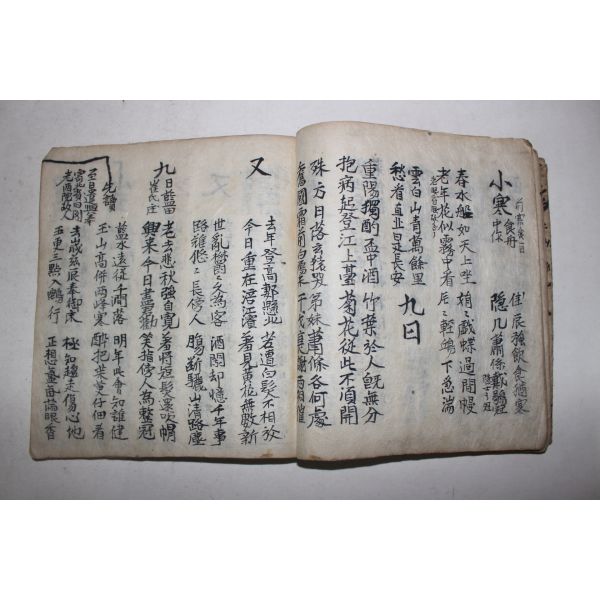 小寒食舟中作 佳辰強飲食猶寒 隱几蕭條戴鶡冠
隱士之冠
春水船如天上坐 娟〻戲蝶過閒幔
老年花似霧中看 片〻輕鷗下急湍
雲白山青萬餘里
愁省直北是長安
九日
重陽獨酌盃中酒 竹葉於人旣無分
抱病起登江上臺 菊花從此不須開
殊方日落玄猿哭 弟妹蕭條各何處
舊國霜前白鴈來 干戈衰謝兩相催
又
去年登高郪縣北 若遭白髮不相放
今日重在涪江濱 羞見黃花無數新
世亂鬱〻久為客 酒闌却憶十年事
路難悠〻長傍人 腸斷驪山淸路塵
九日藍田崔氏庄
老去悲秋强自寬 羞將短髮還吹帽
興來今日盡君歡 笑指傍人為整冠
藍水遠從千澗落 明年此會知誰健
玉山高倂兩峰寒 醉把茱萸仔細看
先讀
至日遣興奉寄北省旧閣老兩院故人
去歲茲辰奉御床 極知趨走傷心地
五更三點入鵷行 正想氤氳滿眼香